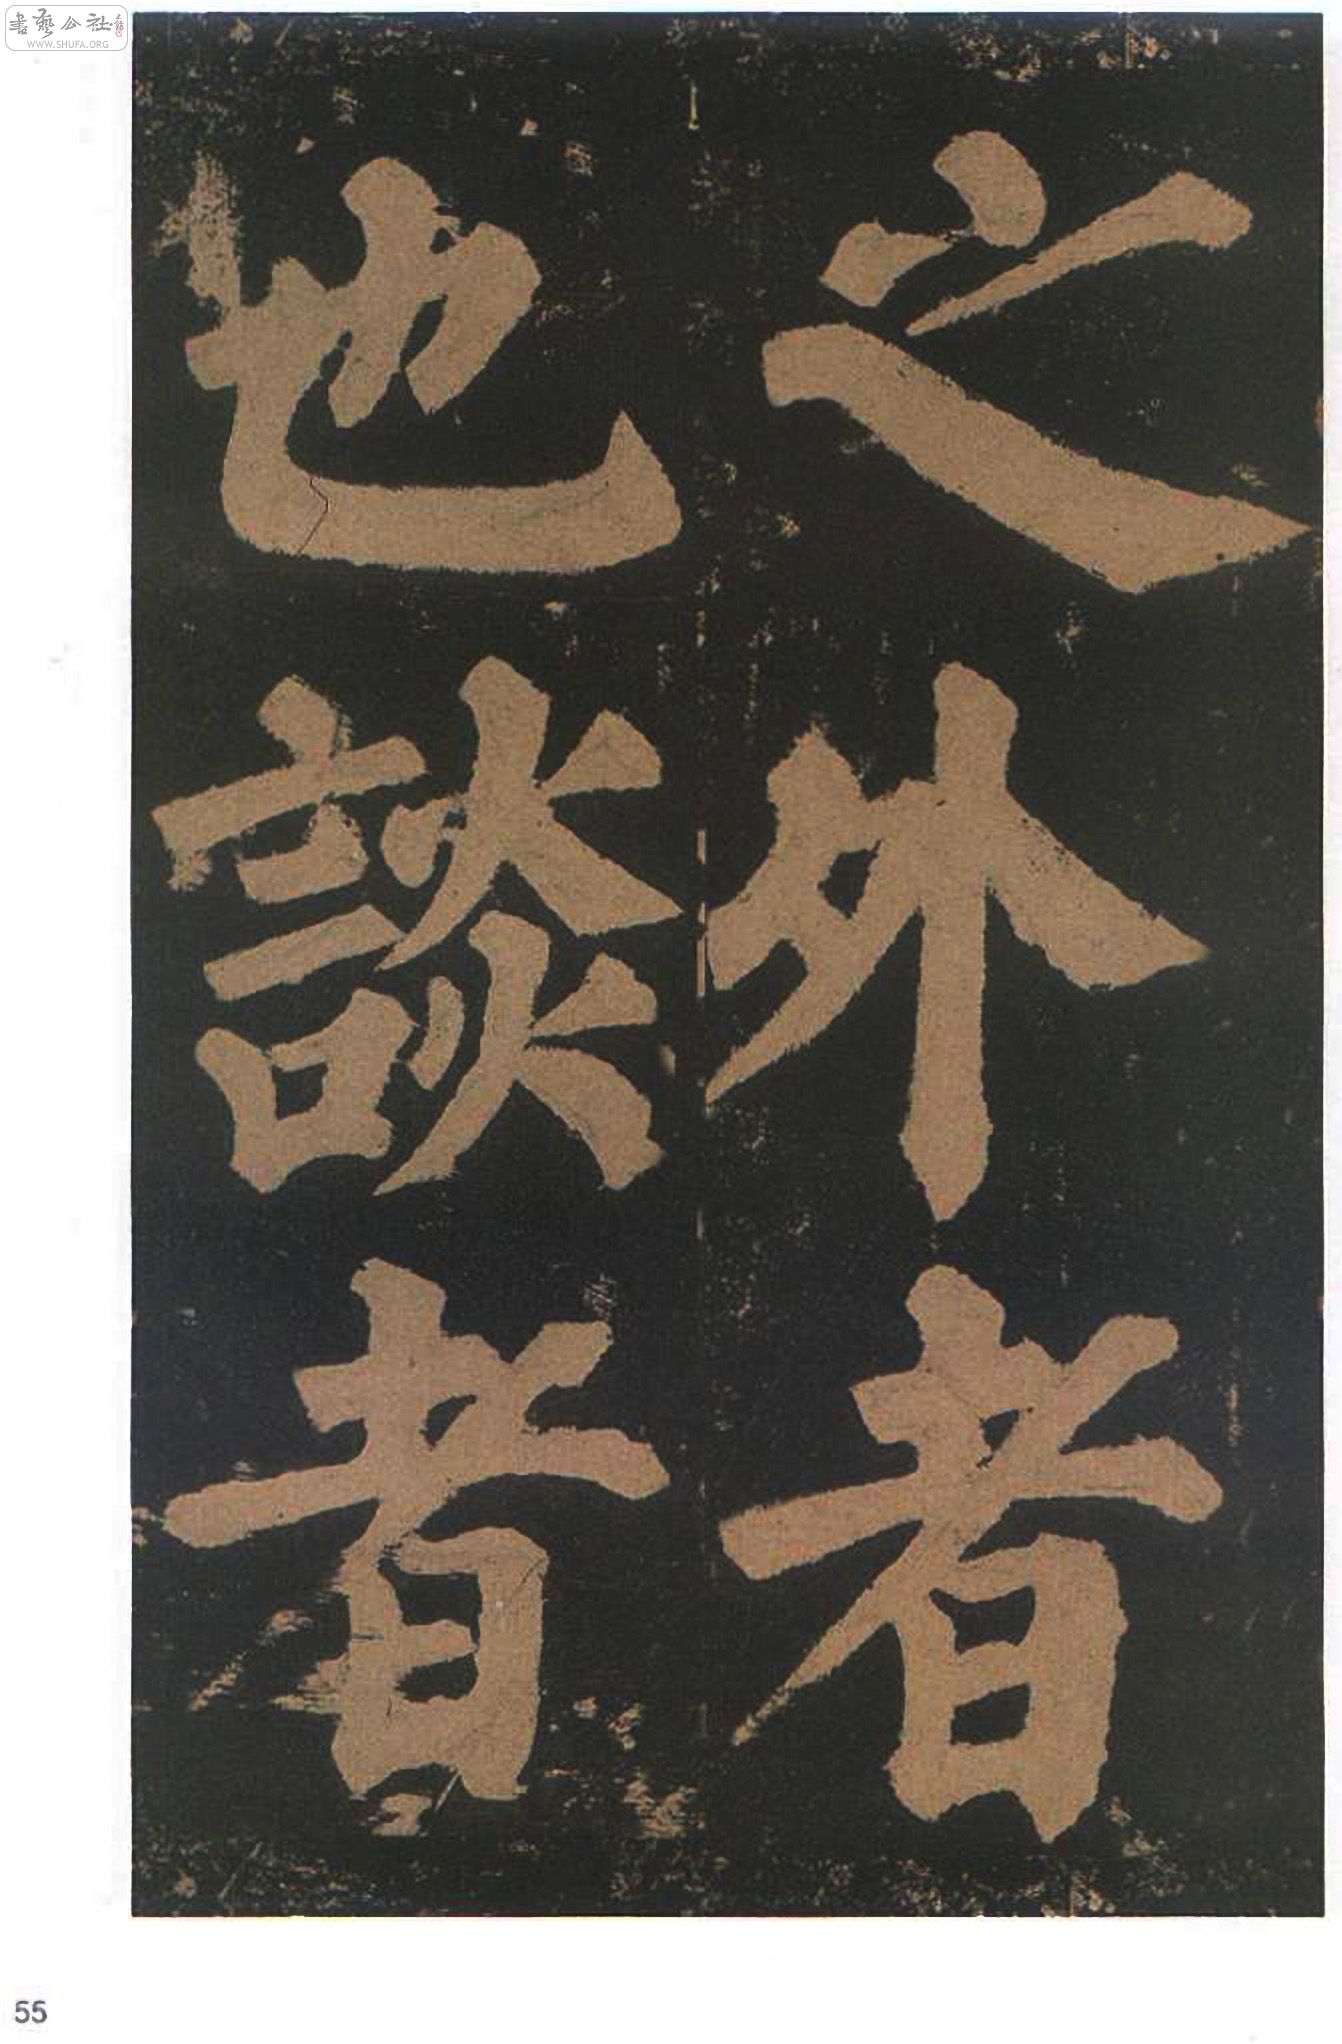 書藝公社
WWW.SHUFA.ORG
之外者
也談者
55